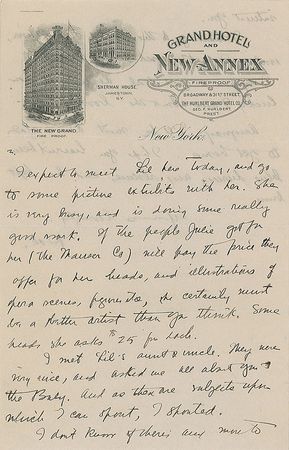 GRAND HOTEL
AND
NEW ANNEX
FIREPROOF
BROADWAY & 31ST STREET
THE HURLBERT GRAND HOTEL CO.
GEO. F. HURLBERT,
PREST
SHERMAN HOUSE
JAMESTOWN,
N.Y.
THE NEW GRAND
FIRE PROOF
New York
2
I expect to meet Lil here today, and go
to some picture exhibits with her. She
is very busy, and is doing some really
good work. If the people Julie got for
her (the Co) will pay the price they
offer for her heads, and illustrations of
opera scenes, figures etc, she certainly must
be a better artist than you think. Some
heads she asks $25 for each.
I met Lil's aunt & uncle. They were
very nice, and asked me all about you &
the Baby. And as these are subjects upon
which I can spout, I spouted.
I don't know if there's any more to